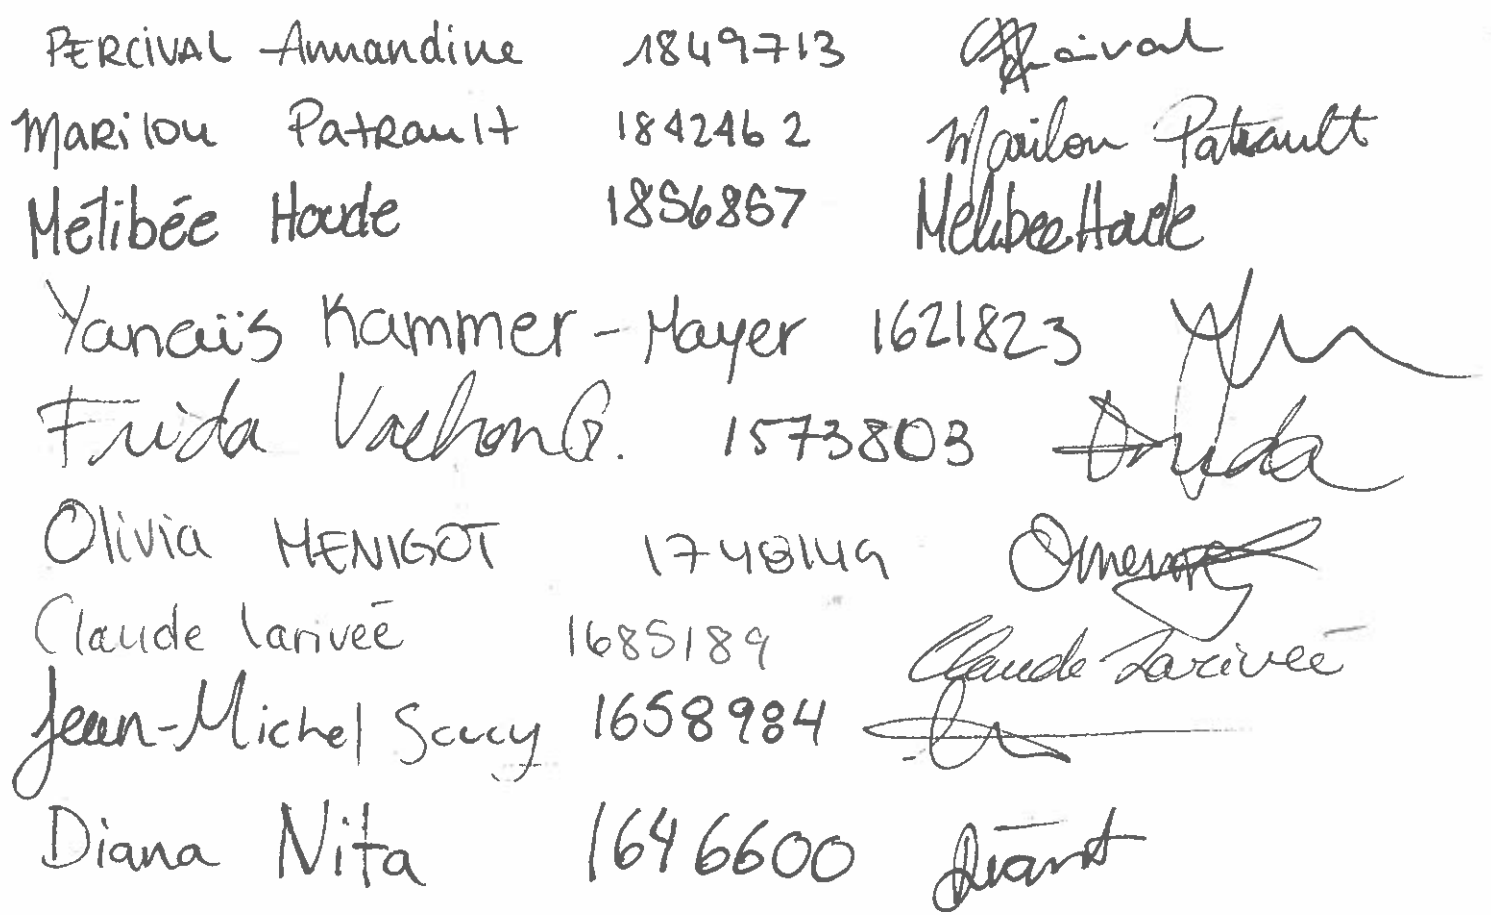 PERCIVAL Amandine 1849713
Marilou Patrault 1842462 Marilou Patrault
Mélibée Houde 1856867 Mélibée Houde
Yanaïs Kammer-Mayer 1621823
Frida Vachon G. 1573803 Frida
Olivia MENIGOT 1748149
Claude Larivée 1685189 Claude Larivée
Jean-Michel Saucy 1658984
Diana Nita 1646600